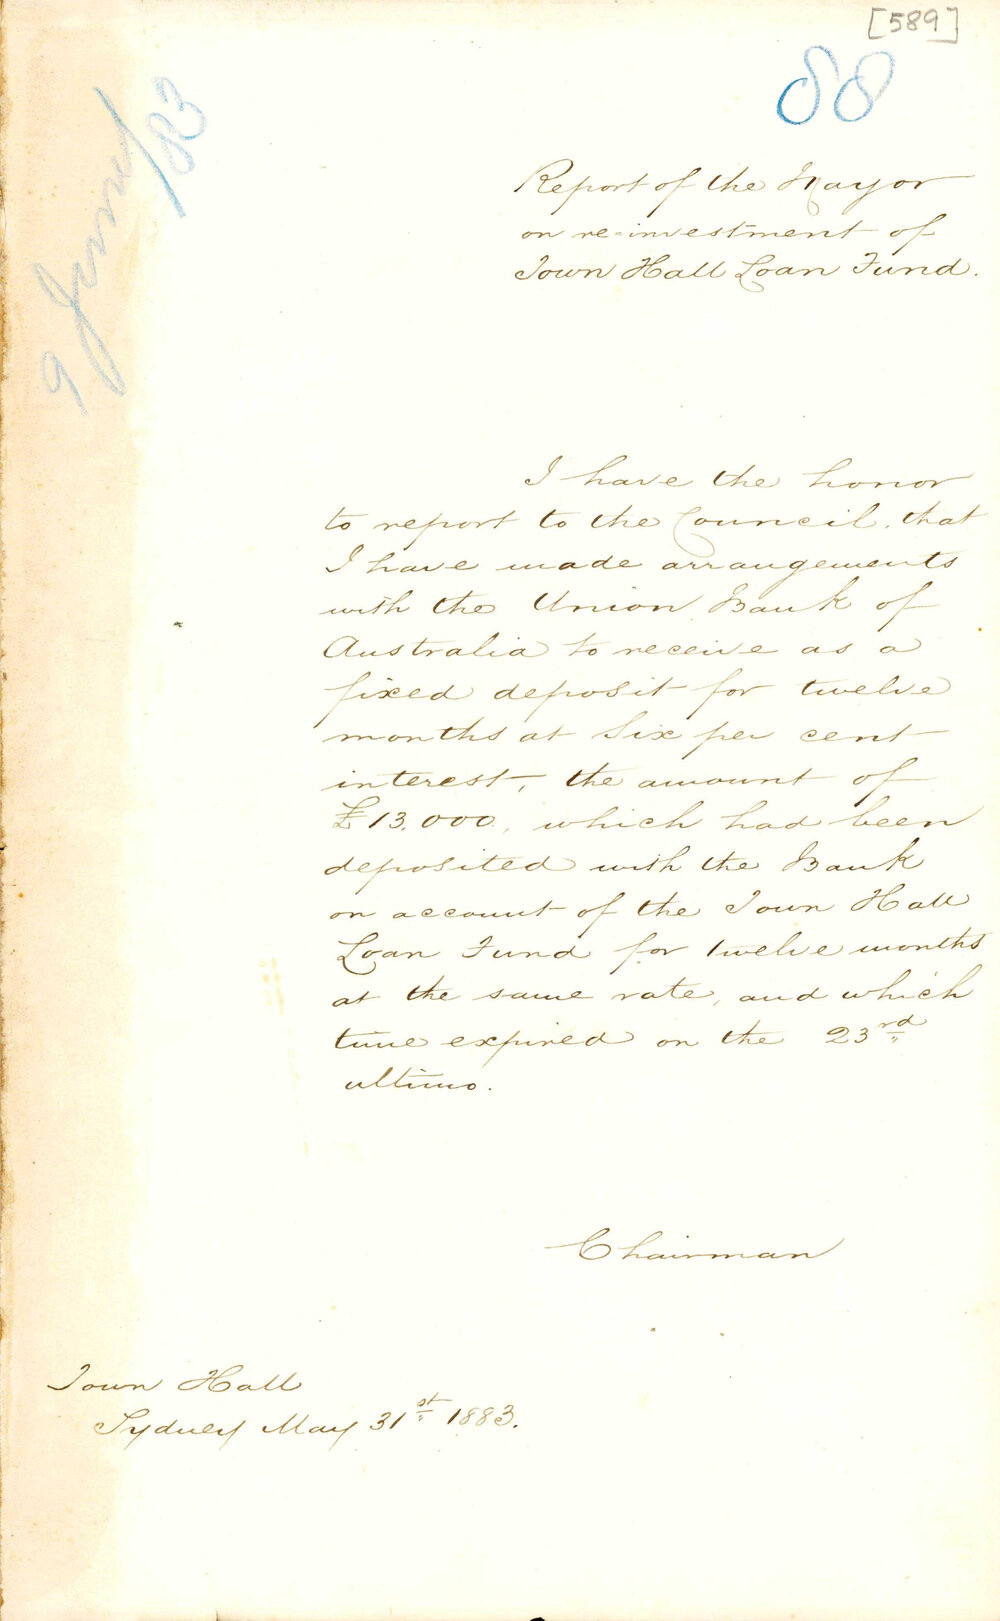 [589]
88
9 June/83
Report of the Mayor
on re-investment of
Town Hall Loan Fund.
I have the honor
to report to the Council, that
I have made arrangements
with the Union Bank of
Australia to receive as a
fixed deposit for twelve
months at Six per cent
interest, the amount of
£13.000, which had been
deposited with the Bank
on account of the Town Hall
Loan Fund for twelve months
at the same rate, and which
time expired on the 23rd
ultimo.
Chairman
Town Hall
Sydney May 31st 1883.